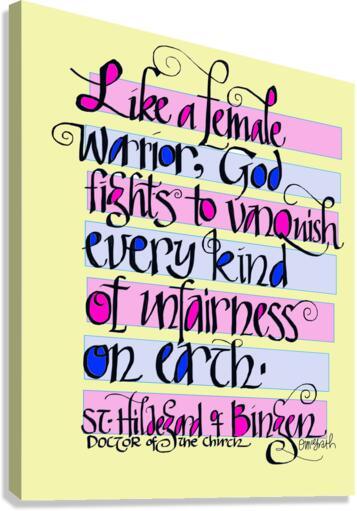 Like a female
Warrior, God
fights to vanquish
every kind
of unfairness
on earth.
St. Hildegard of Bingen
Doctor of the Church